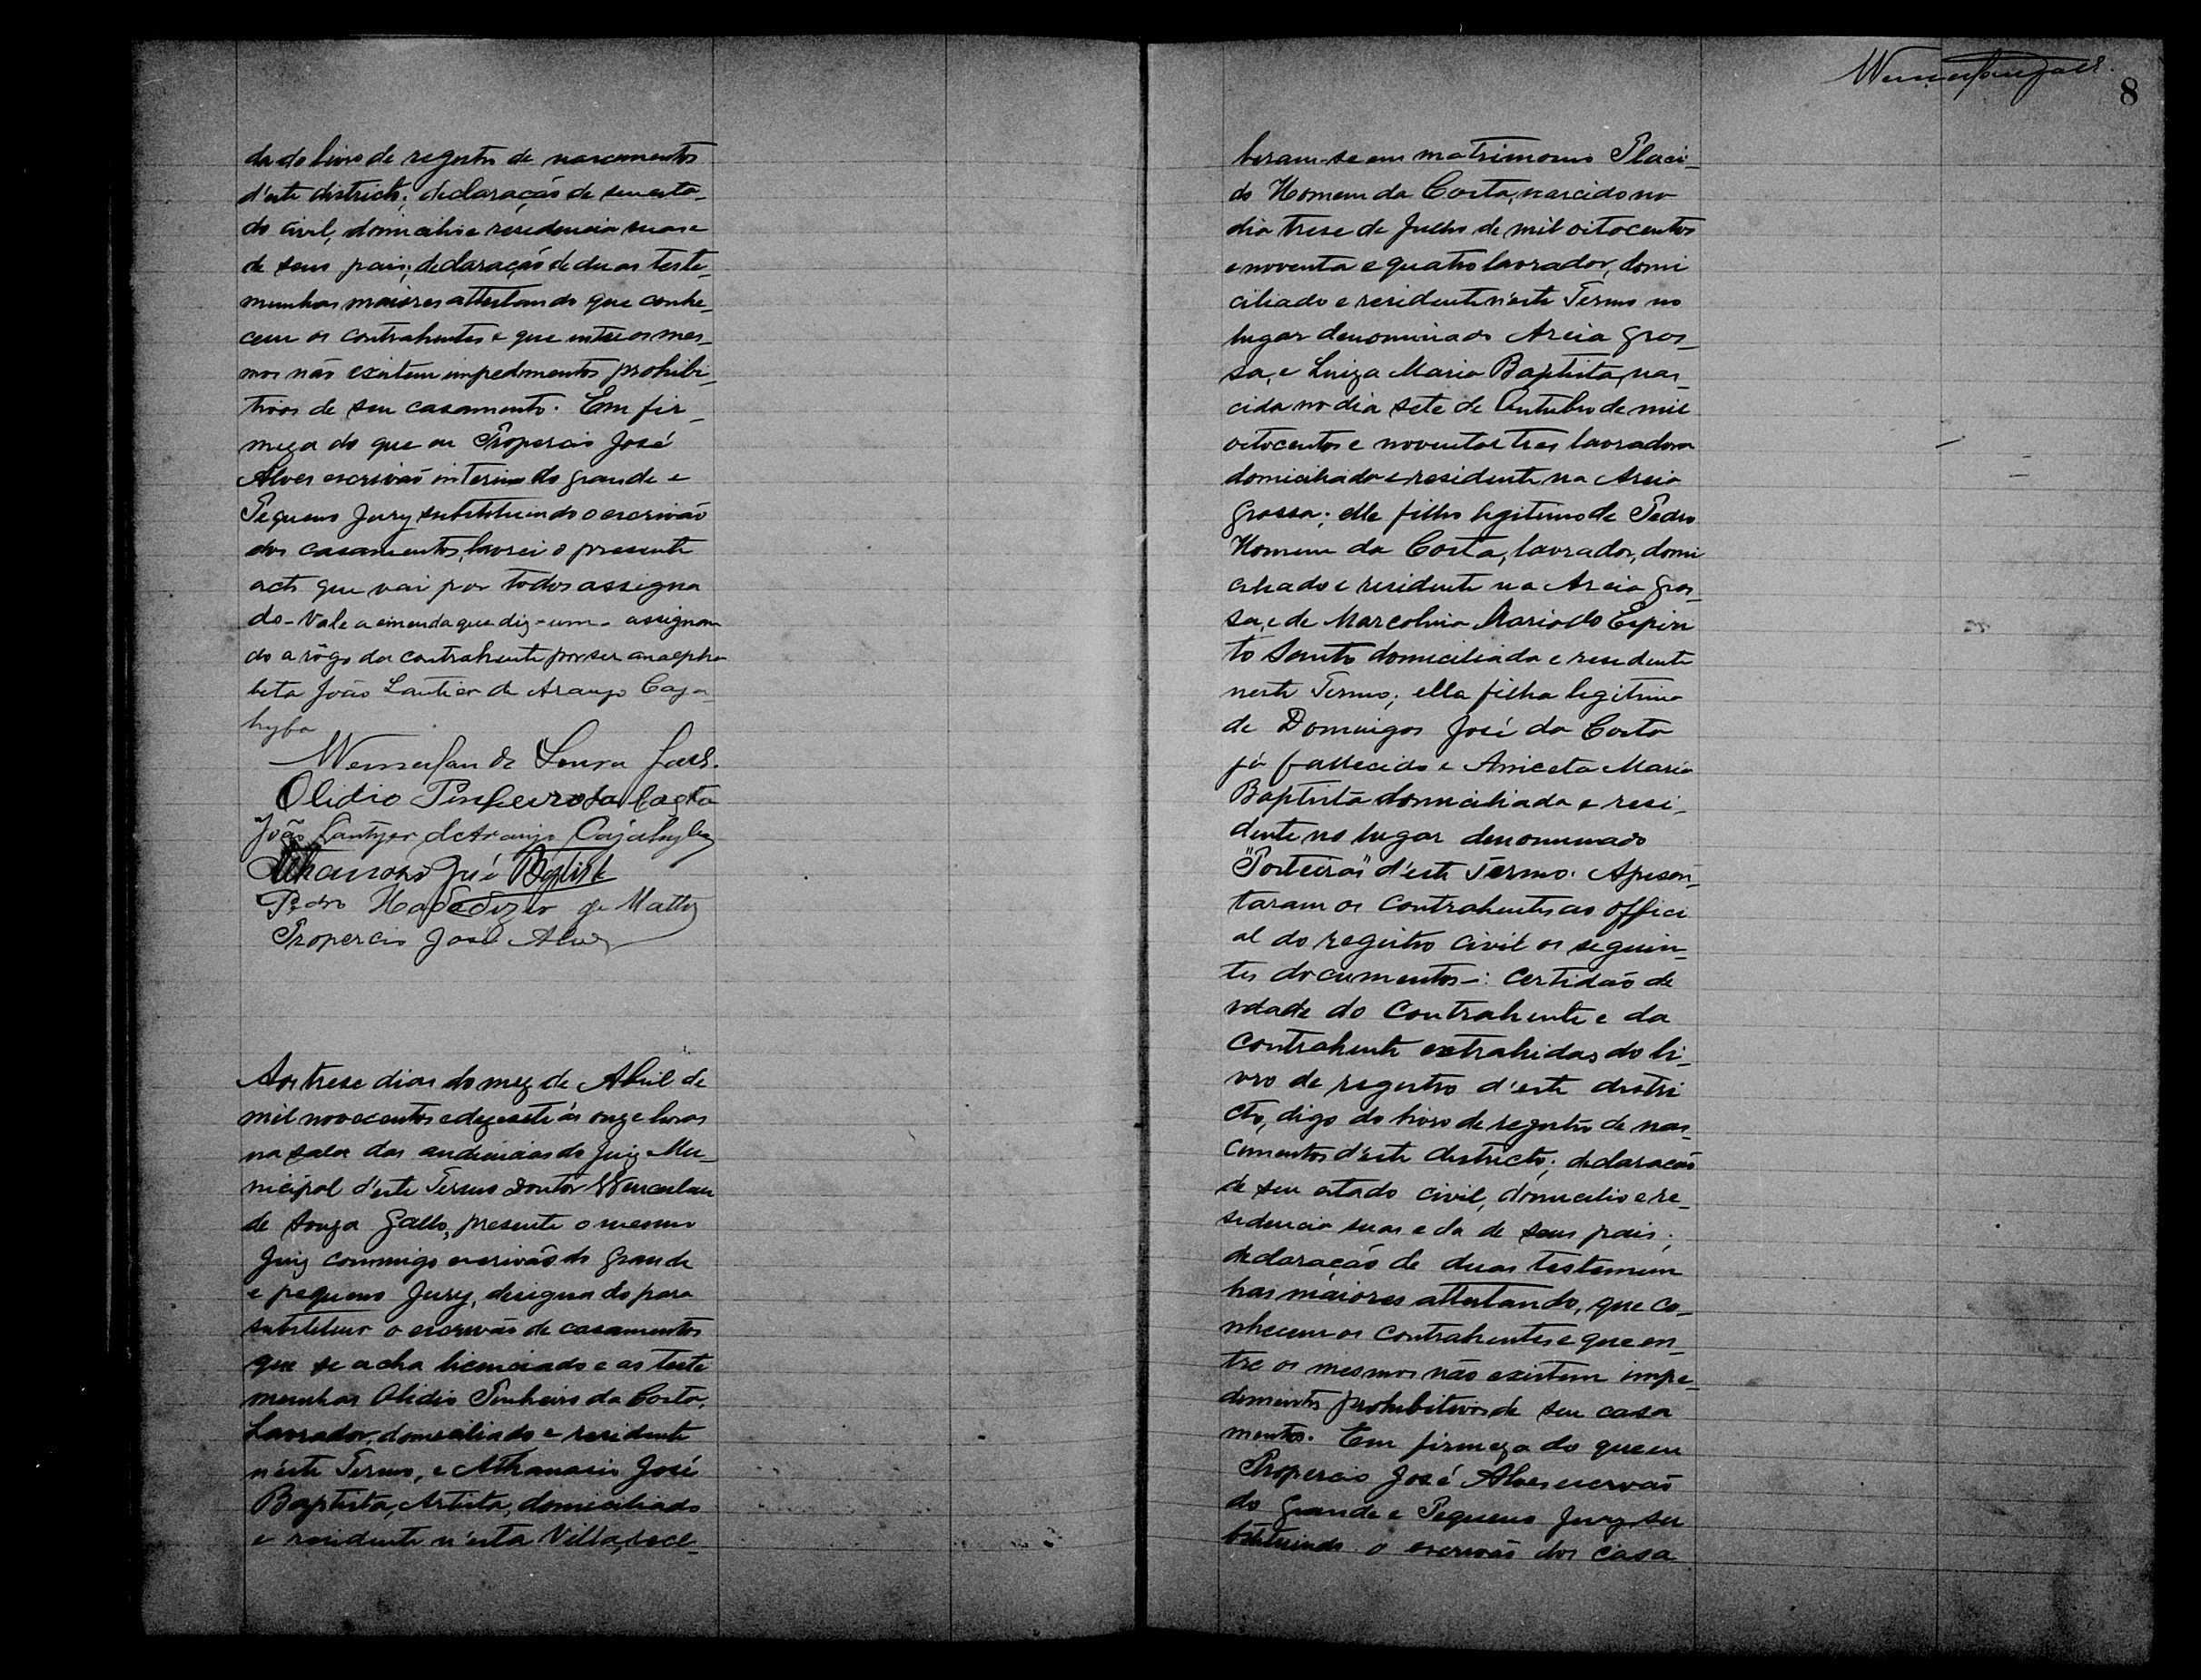 da do livro de registro de nascimentos
d'este districto; declaração de seu esta-
do civil, domicilio e residencia suas e
de seus pais; declaração de duas teste-
munhas maiores attestando que conhe-
cem os contrahentes e que entre os mes-
mos não existem impedimentos prohibi-
tivos de seu casamento. Em fir-
meza do que eu Propercio José
Alves escrivão interino do grande e
Pequeno Jury substituindo o escrivão
dos casamentos, lavrei o presente
acto que vai por todos assigna
do - Vale a emenda que diz - um - assignan
do a rôgo da contrahente por ser analpha
beta João Lantier de Araujo Caja-
hyba
Wenceslau de Souza Gallo.
Olidio Pinheiro da Costa
João Lantyer de Araujo Cajahyba
Athanasio José Baptista
Pedro de Mattos
Propercio José Alves
Aos trese dias do mez de Abril de
mil novecentos e dezesete ás onze horas
na sala das audiencias do Juiz Mu-
nicipal d'este Termo Doutor Wenceslau
de Souza Gallo, presente o mesmo
Juiz commigo escrivão do Grande
e pequeno Jury, designado para
substituir o escrivão de casamentos
que se acha licenciado e as teste
munhas Olidio Pinheiro da Costa,
Lavrador, domiciliado e residente
n'este Termo, e Athanasio José
Baptista, Artista, domiciliado
e residente n'esta Villa, rece-
Wenceslau Gallo.
8
beram-se em matrimonio Placi-
do Homem da Costa, nascido no
dia trese de Julho de mil oitocentos
e noventa e quatro lavrador, domi
ciliado e residente n'este Termo no
lugar denominado Areia gros-
sa, e Luiza Maria Baptista, nas-
cida no dia sete de Outubro de mil
oitocentos e noventa e tres lavradora
domiciliada e residente na Areia
Grossa; elle filho legitimo de Pedro
Homem da Costa, lavrador, domi
ciliado e residente na Areia Gros-
sa, e de Marcolina Maria do Espiri
to Santo domiciliada e residente
neste Termo; ella filha legitima
de Domingos José da Costa
já fallecido e Aniceta Maria
Baptista domiciliada e resi-
dente no lugar denominado
"Porteiras" d'este Termo. Apresen-
taram os contrahentes ao offici
al do registro civil os seguin-
tes documentos -: Certidão de
idade do contrahente e da
contrahente extrahidas do li-
vro de registro d'este distri
cto, digo do livro de registro de nas-
cimentos d'este districto; declaração
de seu estado civil, domicilio e re-
sidencia suas e da de seus pais;
declaração de duas testemun
has maiores attestando, que co-
nhecem os contrahentes e que en-
tre os mesmos não existem impe-
dimentos prohibitivos de seu casa
mento. Em firmeza do que eu
Propercio José Alves escrivão
do Grande e Pequeno Jury su
bstituindo o escrivão dos casa